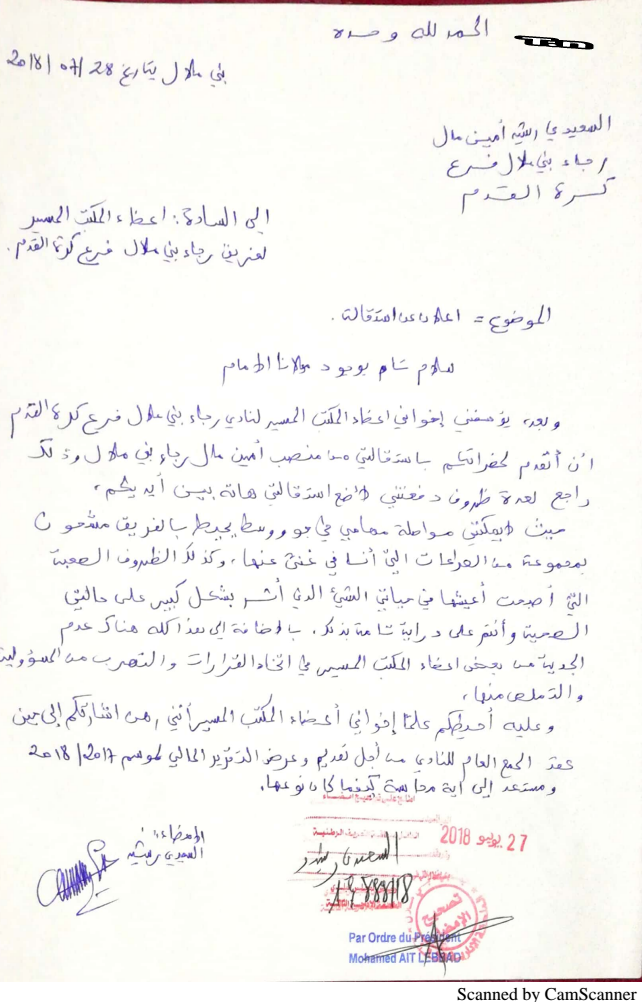 الحمد لله وحده
بني ملال بتاريخ 28/07/2018
السعيدي رشيد أمين مال
رجاء بني ملال فرع
كرة القدم
إلى السادة: اعضاء المكتب المسير
لفريق رجاء بني ملال فرع كرة القدم.
الموضوع = اعلان عن استقالة.
سلام تام بوجود مولانا الامام
وبعد، يؤسفني إخواني اعضاء المكتب المسير لنادي رجاء بني ملال فرع كرة القدم
أن أتقدم لحضراتكم باستقالتي من منصب أمين مال رجاء بني ملال وذلك
راجع لعدة ظروف دفعتني لأضع استقالتي هاته بين أيديكم،
حيث لايمكنني مواصلة مهامي في جو ووسط يحيط بالفريق مشحون
بمجموعة من الصراعات التي أنا في غنى عنها، وكذلك الظروف الصعبة
التي أصبحت أعيشها في حياتي الشيء الذي أثر بشكل كبير على حالتي
الصحية وأنتم على دراية تامة بذلك. بالاضافة إلى هذا كله هناك عدم
الجدية من بعض اعضاء المكتب المسير في اتخاذ القرارات والتهرب من المسؤولية
والتملص منها،
وعليه أحيطكم علما إخواني أعضاء المكتب المسير أنني رهن اشارتكم إلى حين
عقد الجمع العام للنادي من أجل تقديم وعرض التقرير المالي لموسم 2017/2018
ومستعد إلى أية محاسبة كيفما كان نوعها.
الإمضاء:
السعيدي رشيد
27 يوليو 2018
السعيدي رشيد
تصحيح
الإمضاء
Par Ordre du Président
Mohamed AIT LEBBAD
Scanned by CamScanner